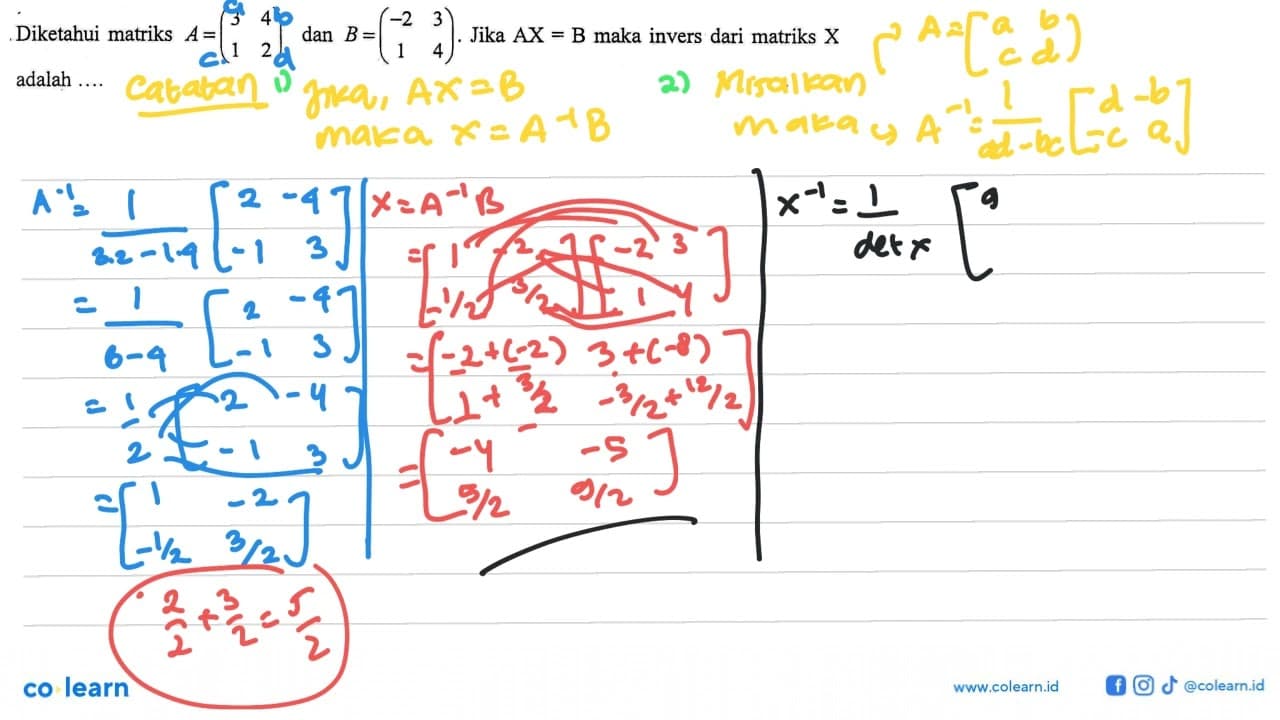 Diketahui matriks A = (3 4 1 2) dan B = (-2 3 1 4). Jika AX = B maka invers dari matriks X
a b c d
adalah ....
Catatan 1) Jika, AX = B
maka x = A^-1 B
2) Misalkan A = [a b c d)
maka A^-1 = 1/ad-bc [d -b -c a]
A^-1 = 1/3.2-1.4 [2 -4 -1 3]
= 1/6-4 [2 -4 -1 3]
= 1/2 [2 -4 -1 3]
= [1 -2 -1/2 3/2]
2/2 + 3/2 = 5/2
X = A^-1 B
= [1 -2 -1/2 3/2] [-2 3 1 4]
= [-2+(-2) 3+(-8) 1+3/2 -3/2+12/2]
= [-4 -5 5/2 9/2]
x^-1 = 1/det x [9
co learn
www.colearn.id
@colearn.id